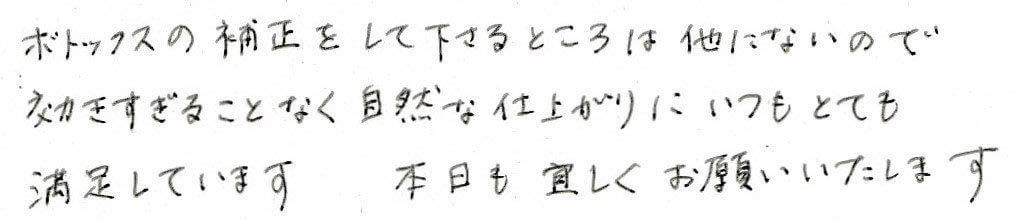 ボトックスの補正をして下さるところは他にないので
効きすぎることなく自然な仕上がりにいつもとても
満足しています　本日も宜しくお願いいたします